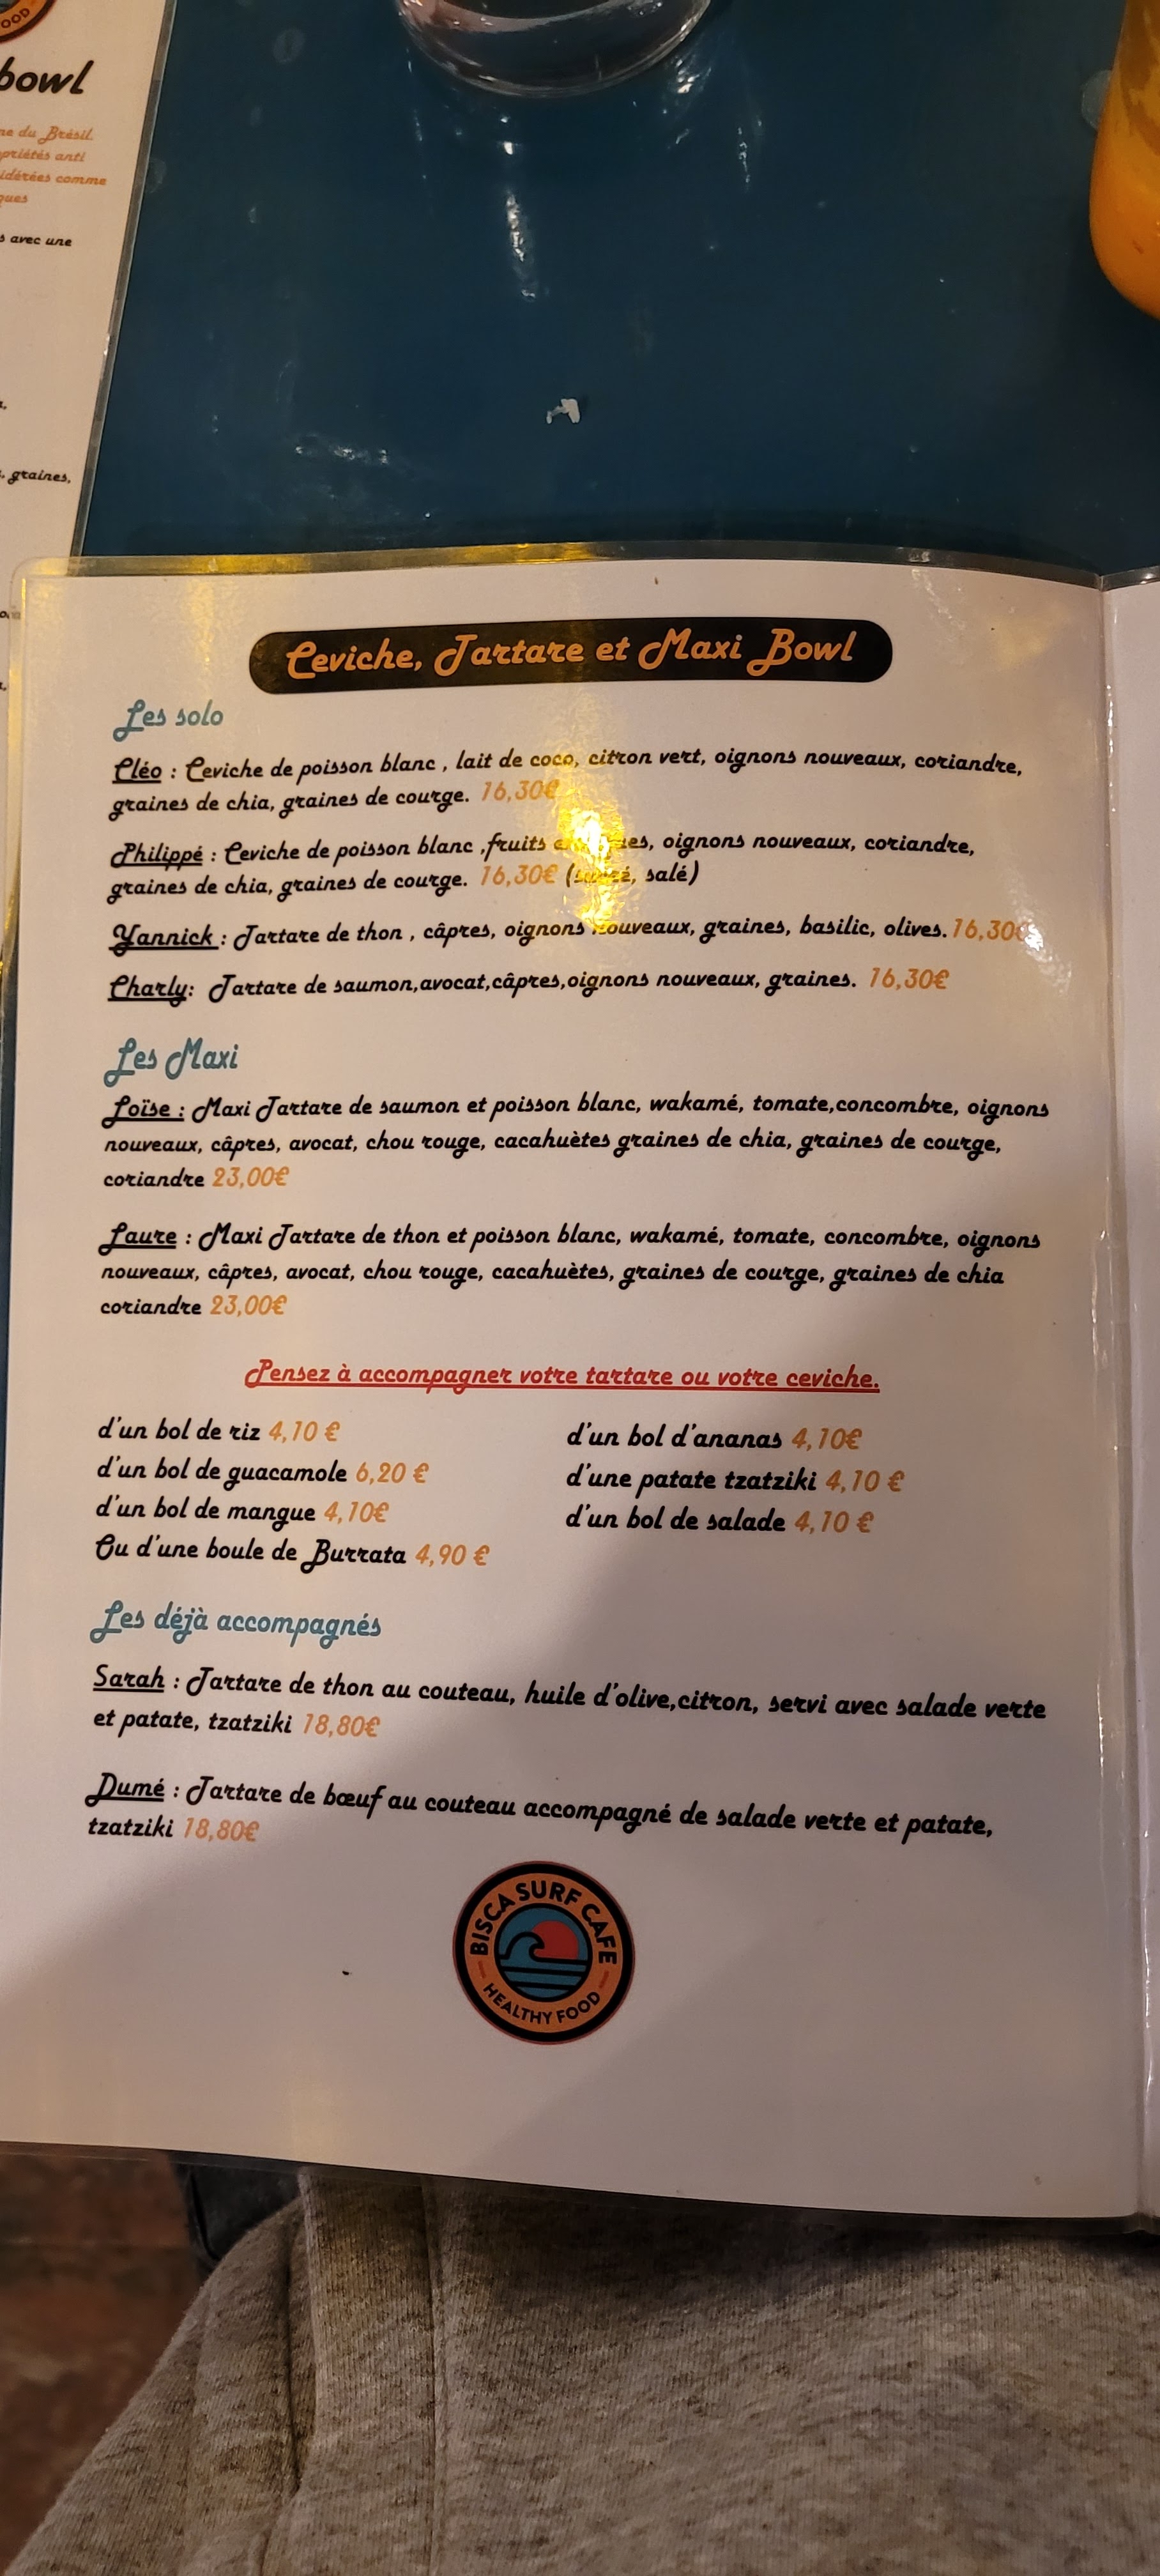 OOD
bowl
ne du Brésil.
priétés anti
idérées comme
ques
s avec une
s, graines,
Ceviche, Tartare et Maxi Bowl
Les solo
Cléo : Ceviche de poisson blanc , lait de coco, citron vert, oignons nouveaux, coriandre,
graines de chia, graines de courge. 16,30€
Philippé : Ceviche de poisson blanc ,fruits oignons nouveaux, coriandre,
graines de chia, graines de courge. 16,30€ ( salé)
Yannick : Tartare de thon , câpres, oignons nouveaux, graines, basilic, olives. 16,30€
Charly: Tartare de saumon,avocat,câpres,oignons nouveaux, graines. 16,30€
Les Maxi
Loïse : Maxi Tartare de saumon et poisson blanc, wakamé, tomate,concombre, oignons
nouveaux, câpres, avocat, chou rouge, cacahuètes graines de chia, graines de courge,
coriandre 23,00€
Laure : Maxi Tartare de thon et poisson blanc, wakamé, tomate, concombre, oignons
nouveaux, câpres, avocat, chou rouge, cacahuètes, graines de courge, graines de chia
coriandre 23,00€
Pensez à accompagner votre tartare ou votre ceviche.
d'un bol de riz 4,10 €
d'un bol de guacamole 6,20 €
d'un bol de mangue 4,10€
Ou d'une boule de Burrata 4,90 €
d'un bol d'ananas 4,10€
d'une patate tzatziki 4,10 €
d'un bol de salade 4,10 €
Les déjà accompagnés
Sarah : Tartare de thon au couteau, huile d'olive,citron, servi avec salade verte
et patate, tzatziki 18,80€
Dumé : Tartare de bœuf au couteau accompagné de salade verte et patate,
tzatziki 18,80€
BISCA SURF CAFE
HEALTHY FOOD